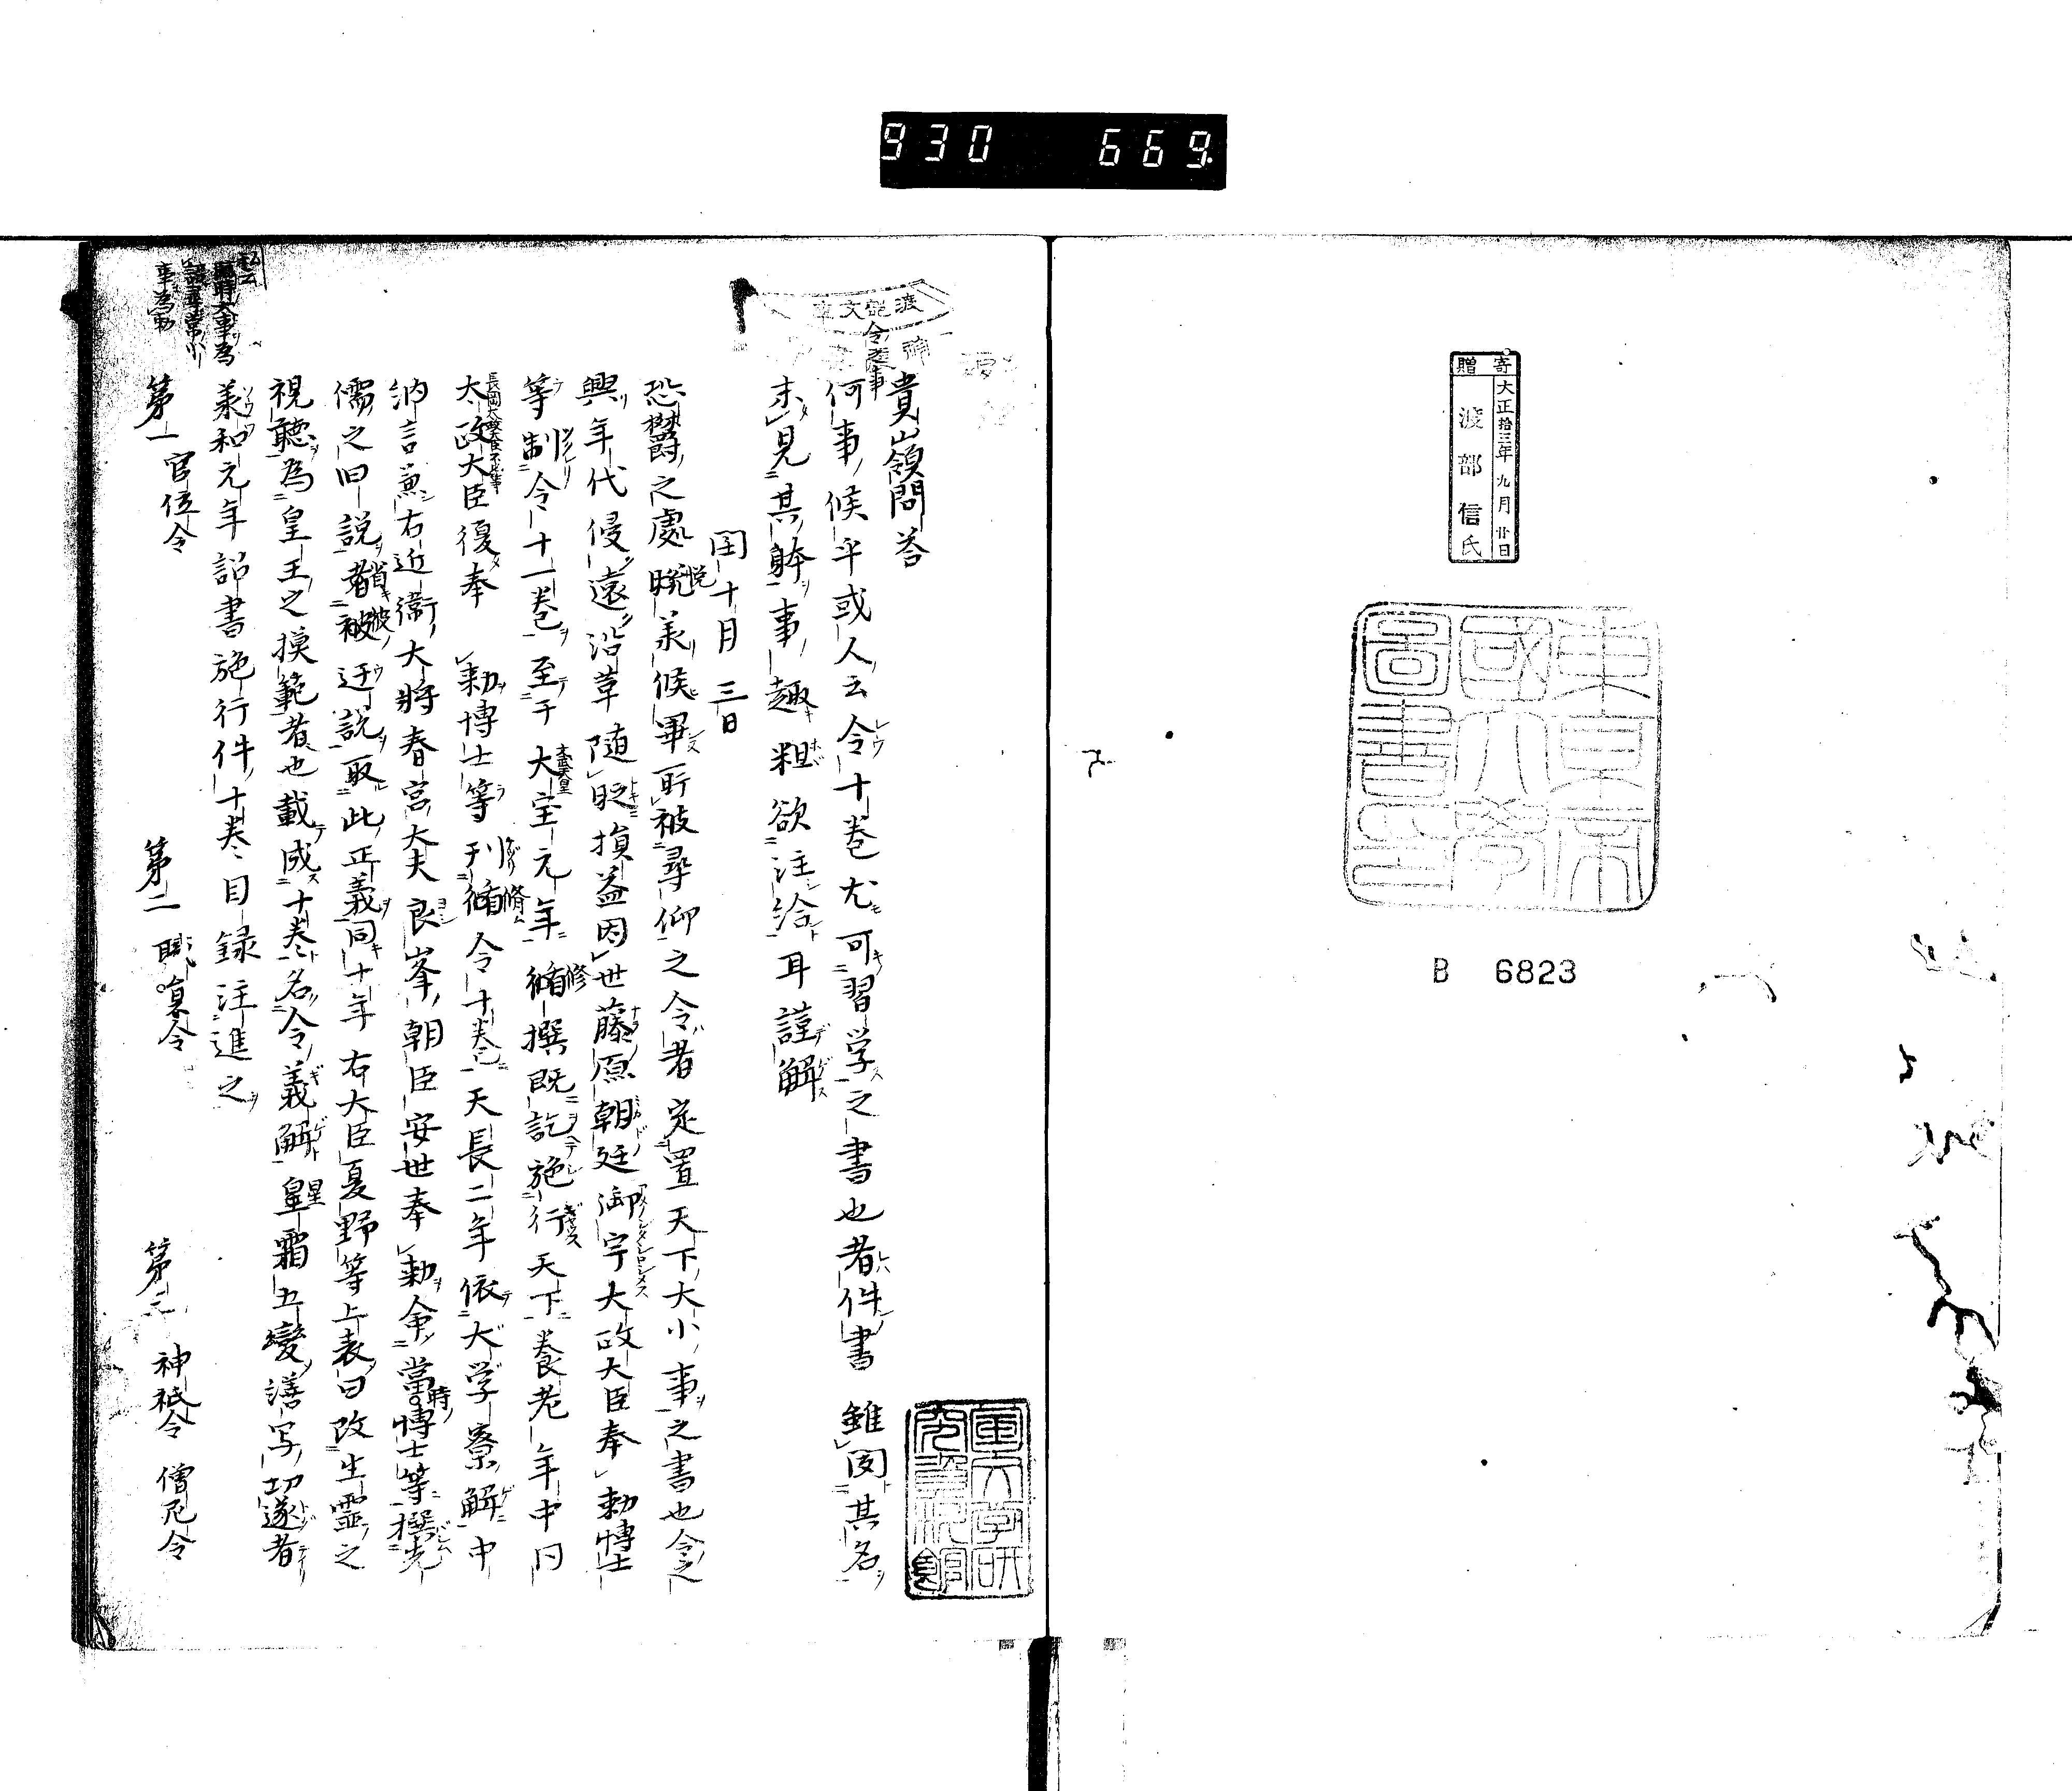 930 669
寄贈
大正拾三年九月廿日
渡部信氏
東京帝國大學圖書印
B 6823
貴嶺問荅
何事候乎或人云令十巻尤可習学之書也者件書雖聞其名
未見其躰事趣粗欲注給耳謹解
閏十月三日
恐欝之處晩羕候畢所被尋仰之令者定置天下大小事之書也令之
興年代侵遠沿革随时損益因世藤原朝廷御宇大政大臣奉勅博士
等制令十一巻至于大宝元年脩撰既訖施行天下養老年中同
太政大臣復奉勅博士等刊脩令十巻天長二年依大学寮解中
納言兼右近衛大将春宮大夫良峯朝臣安世奉勅令當時博士等撰先
儒之旧説者被迂説取此正義同十年右大臣夏野等上表曰改生霊之
視聴為皇王之摸範者也載成十巻名令義解星霜五變謄写切遂者
羕和元年詔書施行件十巻目録注進之
第一 官位令 第二 職員令 第三 神祇令 僧尼令